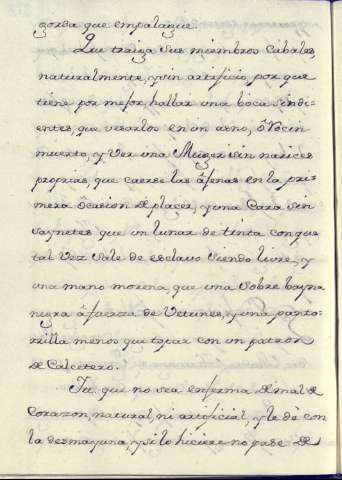 gorda que empalague.
Que traiga sus miembros Cabales,
naturalmente, y sin artificio, por que
tiene por mejor, hallar una boca sindi-
entes, que verarlos en un asno, ô Rocin
muerto, y Ver una Muger sin narices
proprias, que caerse las âgenas en la pri-
mera ôcasion de placer, y una Cara sin
saynetes que un lunar de tinta conque
tal Vez Sale de esclavo siendo livre, y
una mano morena que una sobre bayna
negra â fuerza de Vetunes, y una panto-
rrilla menos que topar con un patron
de Calcetero.
It. que no sea enferma de mal de
Corazon, natural, ni artificial, y le dè con
la desmayuna, y si lo hiciere no pase de